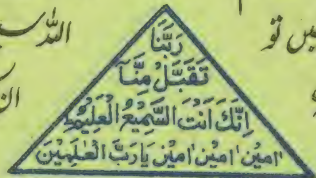 رَبَّنَا
تَقَبَّلْ مِنَّا
اِنَّكَ اَنْتَ السَّمِيْعُ الْعَلِيْمُ
اٰمِيْن اٰمِيْن اٰمِيْن يَارَبَّ الْعٰلَمِيْنَ
یں تو
اللہ